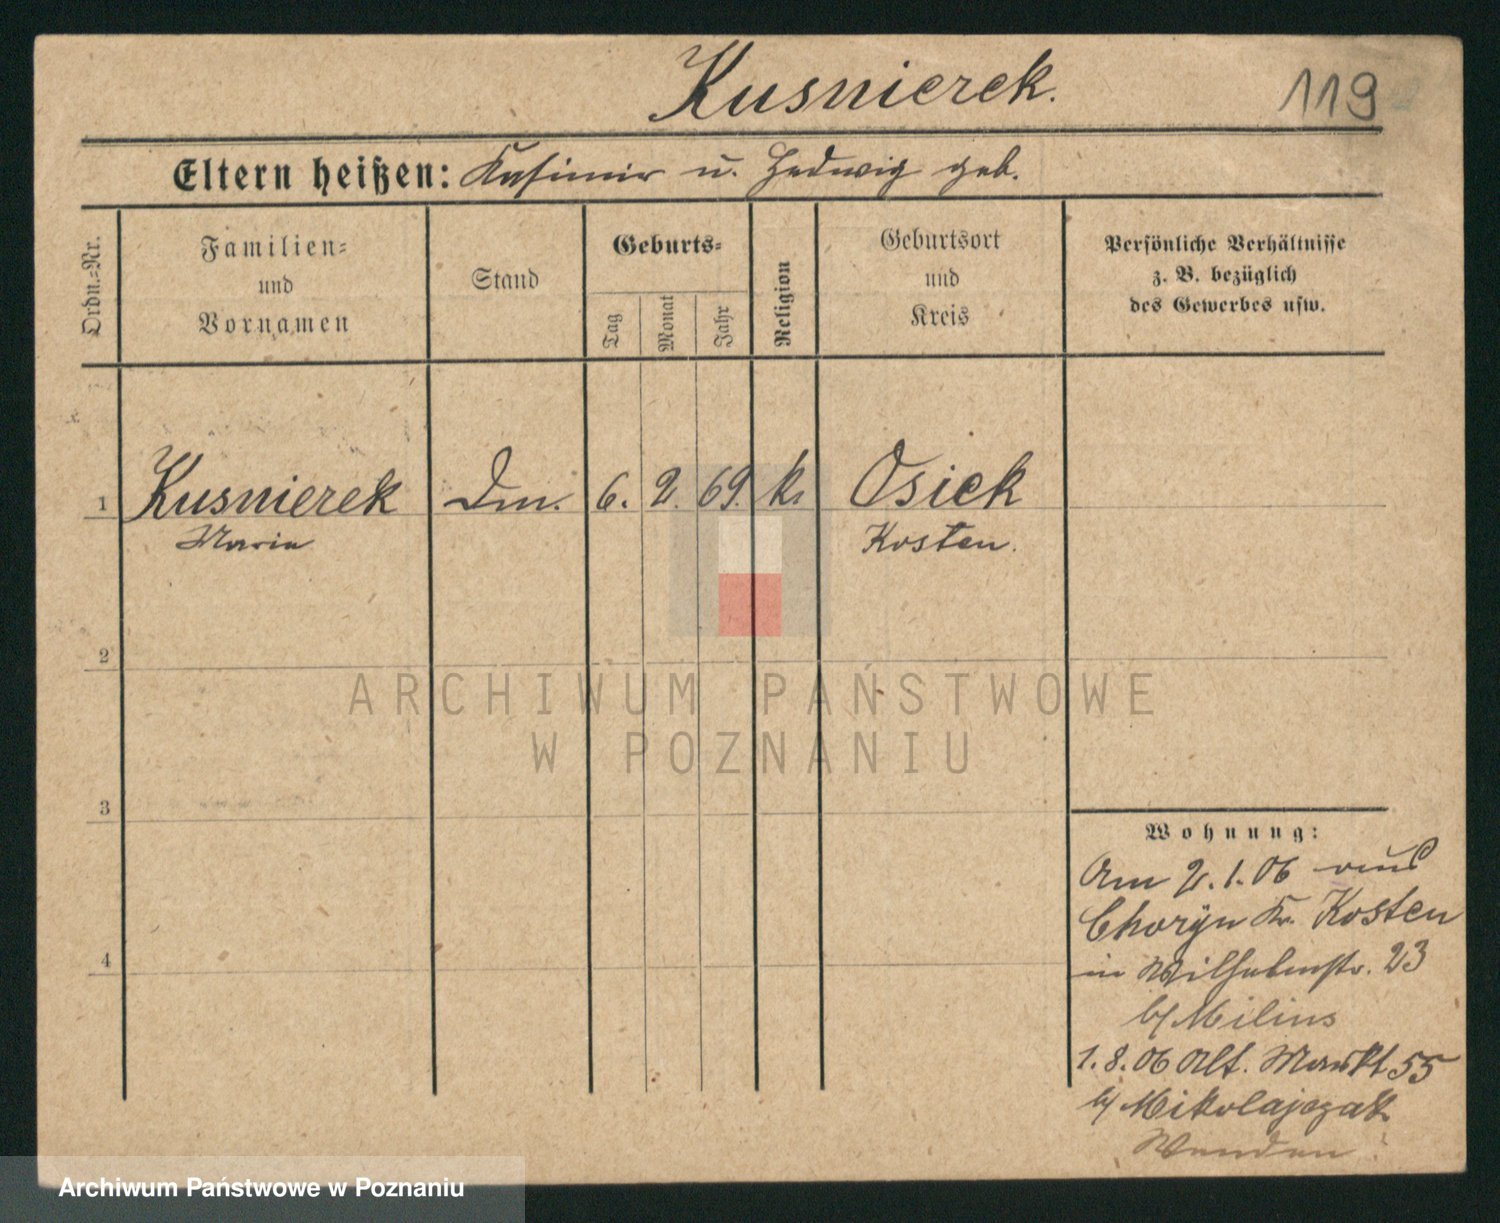 Kusnierek.
119
Eltern heißen: Kasimir u. Hedwig geb.
Ordn.-Nr.
Familien-
und
Vornamen
Stand
Geburts-
Tag
Monat
Jahr
Religion
Geburtsort
und
Kreis
Persönliche Verhältnisse
z. B. bezüglich
des Gewerbes usw.
1 Kusnierek Dm. 6. 2. 69. k. Osiek
Maria Kosten.
2
3
4
Wohnung:
Am 2.1.06 aus
Choryn Kr. Kosten
in Wilhelmstr. 23
b/ Milius
1.8.06 Alt. Markt 55
b/ Mikolajczak
ARCHIWUM PAŃSTWOWE
W POZNANIU
Archiwum Państwowe w Poznaniu